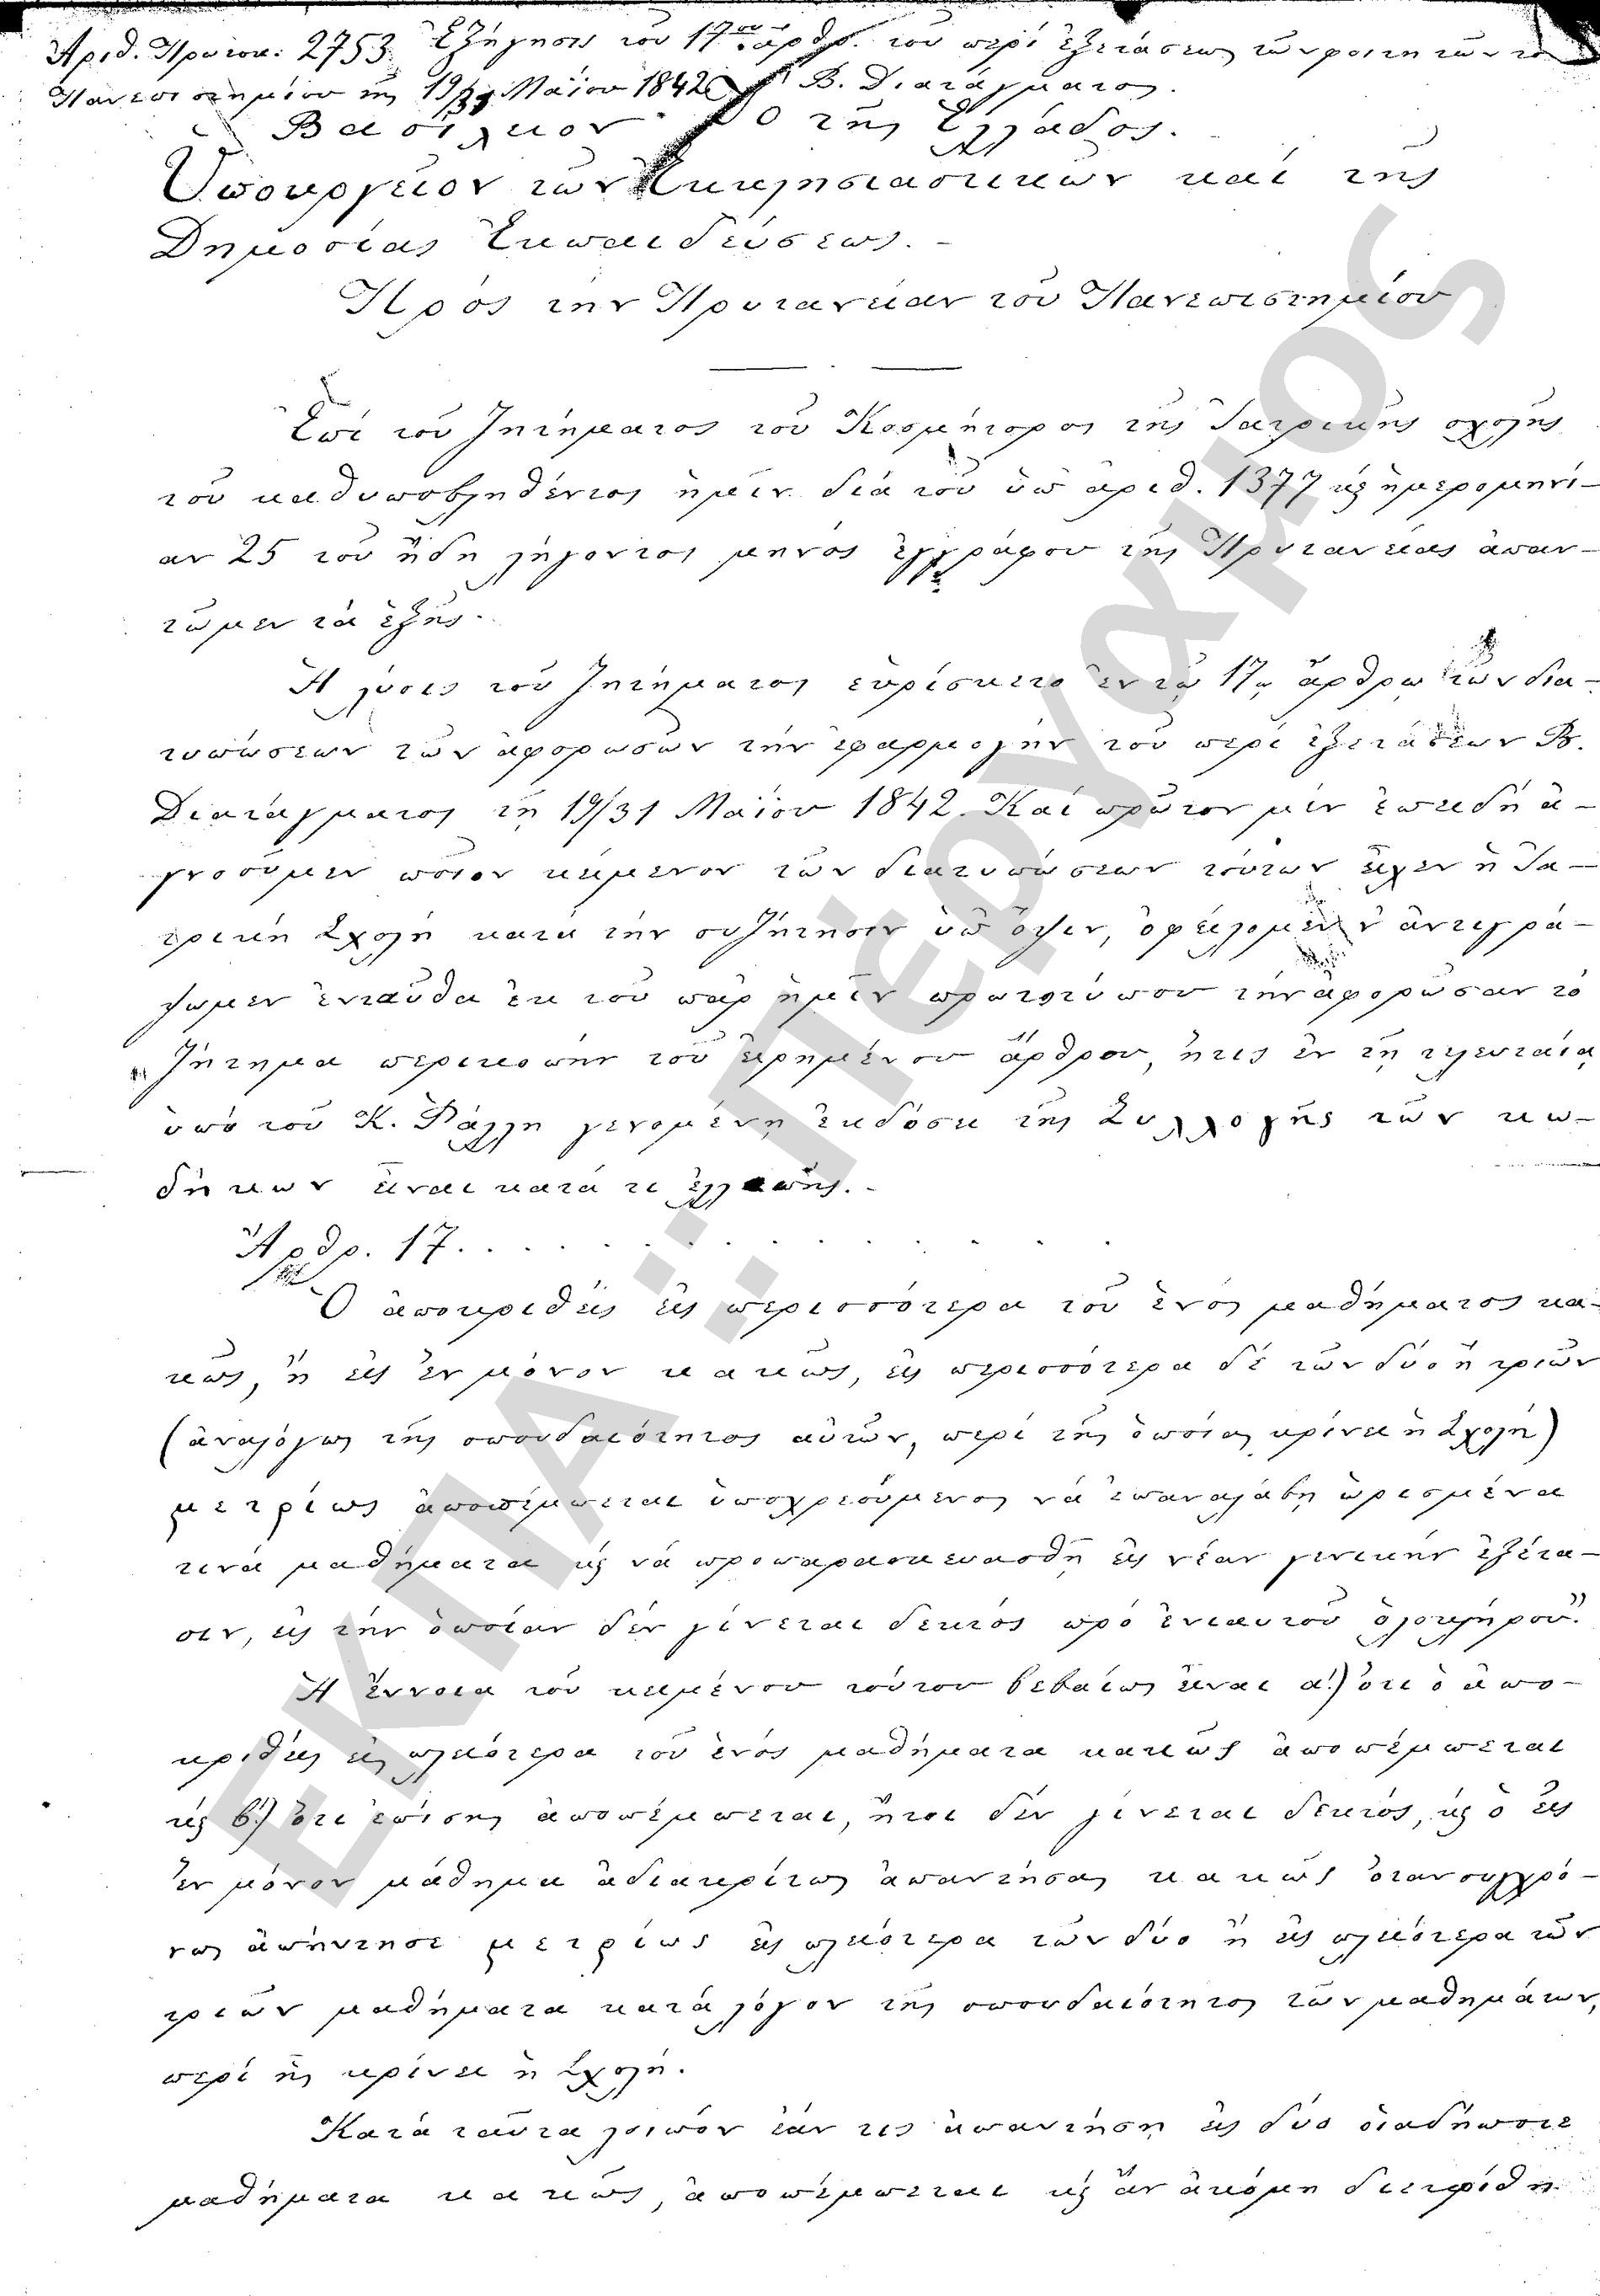 Ἀριθ. Πρωτοκ: 2753. Ἐξήγησις τοῦ 17ου ἄρθρ. τοῦ περὶ ἐξετάσεως τῶν φοιτητῶν τοῦ
Πανεπιστημίου τῆς 19/31 Μαΐου 1842 Β. Διατάγματος.
Βασίλειον τῆς Ἑλλάδος.
Ὑπουργεῖον τῶν Ἐκκλησιαστικῶν καὶ τῆς
Δημοσίας Ἐκπαιδεύσεως. –
Πρὸς τὴν Πρυτανείαν τοῦ Πανεπιστημίου
Ἐπὶ τοῦ ζητήματος τοῦ Κοσμήτορος τῆς Ἰατρικῆς σχολῆς
τοῦ καθυποβληθέντος ἡμῖν διὰ τοῦ ὑπ' ἀριθ. 1377 κ ἡμερομηνί–
αν 25 τοῦ ἤδη λήγοντος μηνὸς ἐγγράφου τῆς Πρυτανείας ἀπαν–
τῶμεν τὰ ἑξῆς.
Ἡ λύσις τοῦ ζητήματος εὑρίσκετο ἐν τῷ 17ῳ ἄρθρῳ τῶν δια–
τυπώσεων τῶν ἀφορωσῶν τὴν ἐφαρμογὴν τοῦ περὶ ἐξετάσεων Β.
Διατάγματος τῆς 19/31 Μαΐου 1842. Καὶ πρῶτον μὲν ἐπειδὴ ἀ–
γνοοῦμεν ποῖον κείμενον τῶν διατυπώσεων τούτων εἶχεν ἡ Ἰα–
τρικὴ Σχολὴ κατὰ τὴν συζήτησιν ὑπ' ὄψιν, ὀφείλομεν ν' ἀντιγρά–
ψωμεν ἐνταῦθα ἐκ τοῦ παρ' ἡμῖν πρωτοτύπου τὴν ἀφορῶσαν τὸ
ζήτημα περικοπὴν τοῦ εἰρημένου ἄρθρου, ἥτις ἐν τῇ τελευταίᾳ
ὑπὸ τοῦ Κ. Ῥάλλη γενομένῃ ἐκδόσει τῆς Συλλογῆς τῶν κω–
δήκων εἶναι κατά τι ἐλλειπής. –
Ἄρθρ. 17. . . . . . . . . . . . . . .
"Ὁ ἀποκριθεὶς εἰς περισσότερα τοῦ ἑνὸς μαθήματος κα–
κῶς, ἢ εἰς ἓν μόνον κακῶς, εἰς περισσότερα δὲ τῶν δύο ἢ τριῶν
(ἀναλόγως τῆς σπουδαιότητος αὐτῶν, περὶ τῆς ὁποίας κρίνει ἡ Σχολή)
μετρίως ἀποπέμπεται ὑποχρεούμενος νὰ ἐπαναλάβῃ ὡρισμένα
τινὰ μαθήματα κ νὰ προπαρασκευασθῇ εἰς νέαν γενικὴν ἐξέτα–
σιν, εἰς τὴν ὁποίαν δὲν γίνεται δεκτὸς πρὸ ἐνιαυτοῦ ὁλοκλήρου."
Ἡ ἔννοια τοῦ κειμένου τούτου βεβαίως εἶναι α.) ὅτι ὁ ἀπο–
κριθεὶς εἰς πλειότερα τοῦ ἑνὸς μαθήματα κακῶς ἀποπέμπεται
κ β.) ὅτι ἐπίσης ἀποπέμπεται, ἤτοι δὲν γίνεται δεκτός, κ ὁ εἰς
ἓν μόνον μάθημα ἀδιακρίτως ἀπαντήσας κακῶς ὅταν συγχρό–
νως ἀπήντησε μετρίως εἰς πλειότερα τῶν δύο ἢ εἰς πλειότερα τῶν
τριῶν μαθήματα κατὰ λόγον τῆς σπουδαιότητος τῶν μαθημάτων,
περὶ ἧς κρίνει ἡ Σχολή.
Κατὰ ταῦτα λοιπὸν ἐάν τις ἀπαντήσῃ εἰς δύο οἱαδήποτε
μαθήματα κακῶς, ἀποπέμπεται κ ἂν ἀκόμη διεκρίθη
ΕΚΠΑ::Πέργαμος